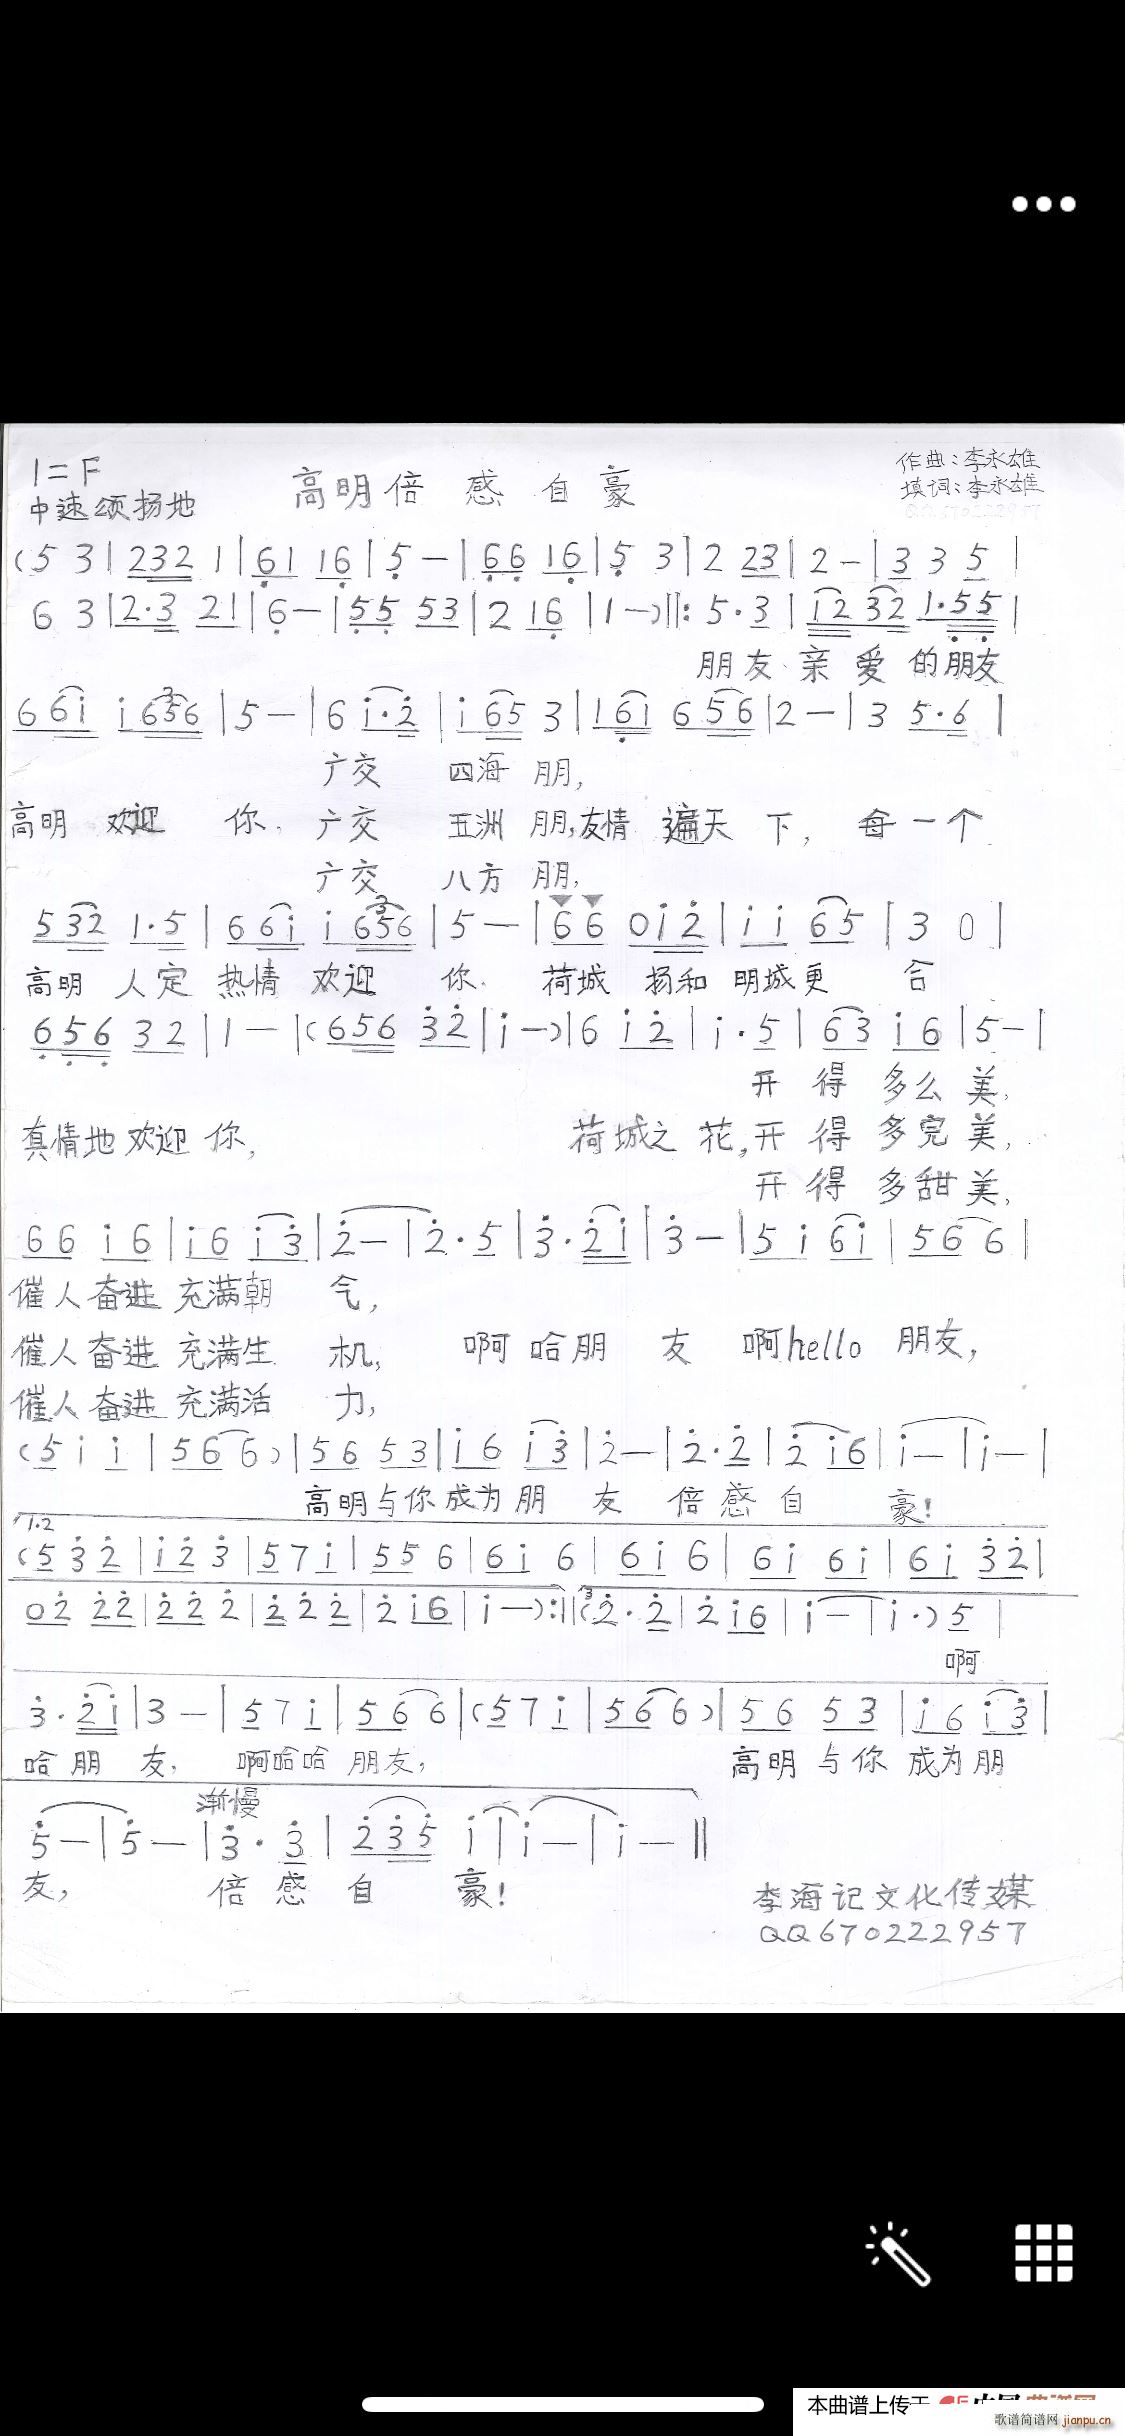 1=F
高明倍感自豪
作曲:李永雄
中速颂扬地
填词:李永雄
(5 3|232 1|61 16|5 —|66 16|5 3|2 23|2 —|3 3 5|
6 3|2·3 21|6 —|55 53|2 16|1 —)‖: 5·3|12 32 1·55|
朋友 亲爱的朋友
6 6i i 656|5 —|6 i·2|i 65 3|1 61 6 56|2 —|3 5·6|
广交 四海朋,
高明 欢迎 你. 广交 五洲朋,友情 遍天 下, 每一个
广交 八方朋,
5 32 1·5|6 6i i 656|5 —|6 6 0i2|i i 65|3 0|
高明 人定 热情 欢迎 你. 荷城 扬和 明城更 合
656 32|1 —|(656 32|i —)|6 i2|i·5|63 i6|5 —|
开得多么美,
真情地欢迎你, 荷城之花,开得多完美,
开得多甜美,
66 i6|i6 i3|2 —|2·5|3·2i|3 —|5 i 6i|56 6|
催人奋进 充满朝气,
催人奋进 充满生机, 啊哈朋友 啊hello 朋友,
催人奋进 充满活力,
(5 i i|56 6)|56 53|i6 i3|2 —|2·2|2 i6|i —|i —|
高明与你成为朋友 倍感自豪!
1.2
(5 3 2|i2 3|57i|55 6|6i 6|6i 6|6i 6i|6i 32|
02 22|22 2|2 2 2|2 i6|i —):‖(3 2·2|2 i6|i —|i·) 5|
啊
3·2i|3 —|57i|56 6|(57i|56 6)|56 53|i6 i3|
哈朋友, 啊哈哈朋友, 高明与你成为朋
渐慢
5 —|5 —|3·3|2 35 i|i —|i —‖
友, 倍感自豪!
李海记文化传媒
QQ670222957
本曲谱上传于
歌谱简谱网 jianpu.cn